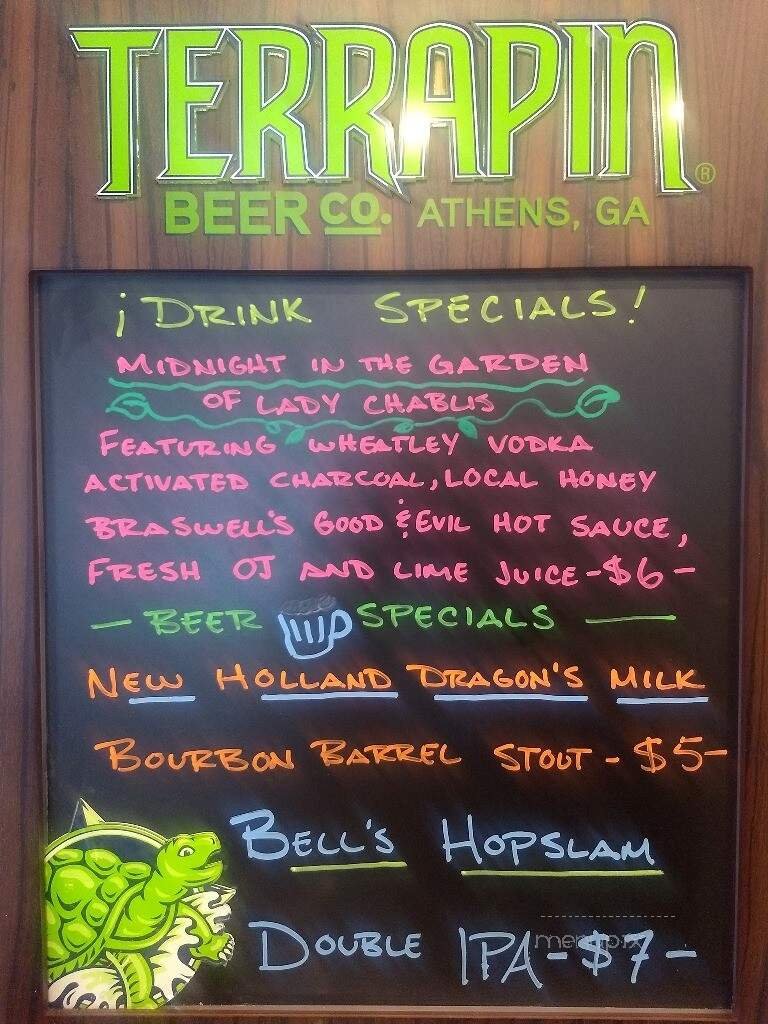 TERRAPIN®
BEER CO. ATHENS, GA
¡DRINK SPECIALS!
MIDNIGHT IN THE GARDEN
OF LADY CHABLIS
FEATURING WHEATLEY VODKA
ACTIVATED CHARCOAL, LOCAL HONEY
BRASWELL'S GOOD & EVIL HOT SAUCE,
FRESH OJ AND LIME JUICE-$6-
- BEER SPECIALS -
NEW HOLLAND DRAGON'S MILK
BOURBON BARREL STOUT - $5-
BELL'S HOPSLAM
DOUBLE IPA-$7-
menupix